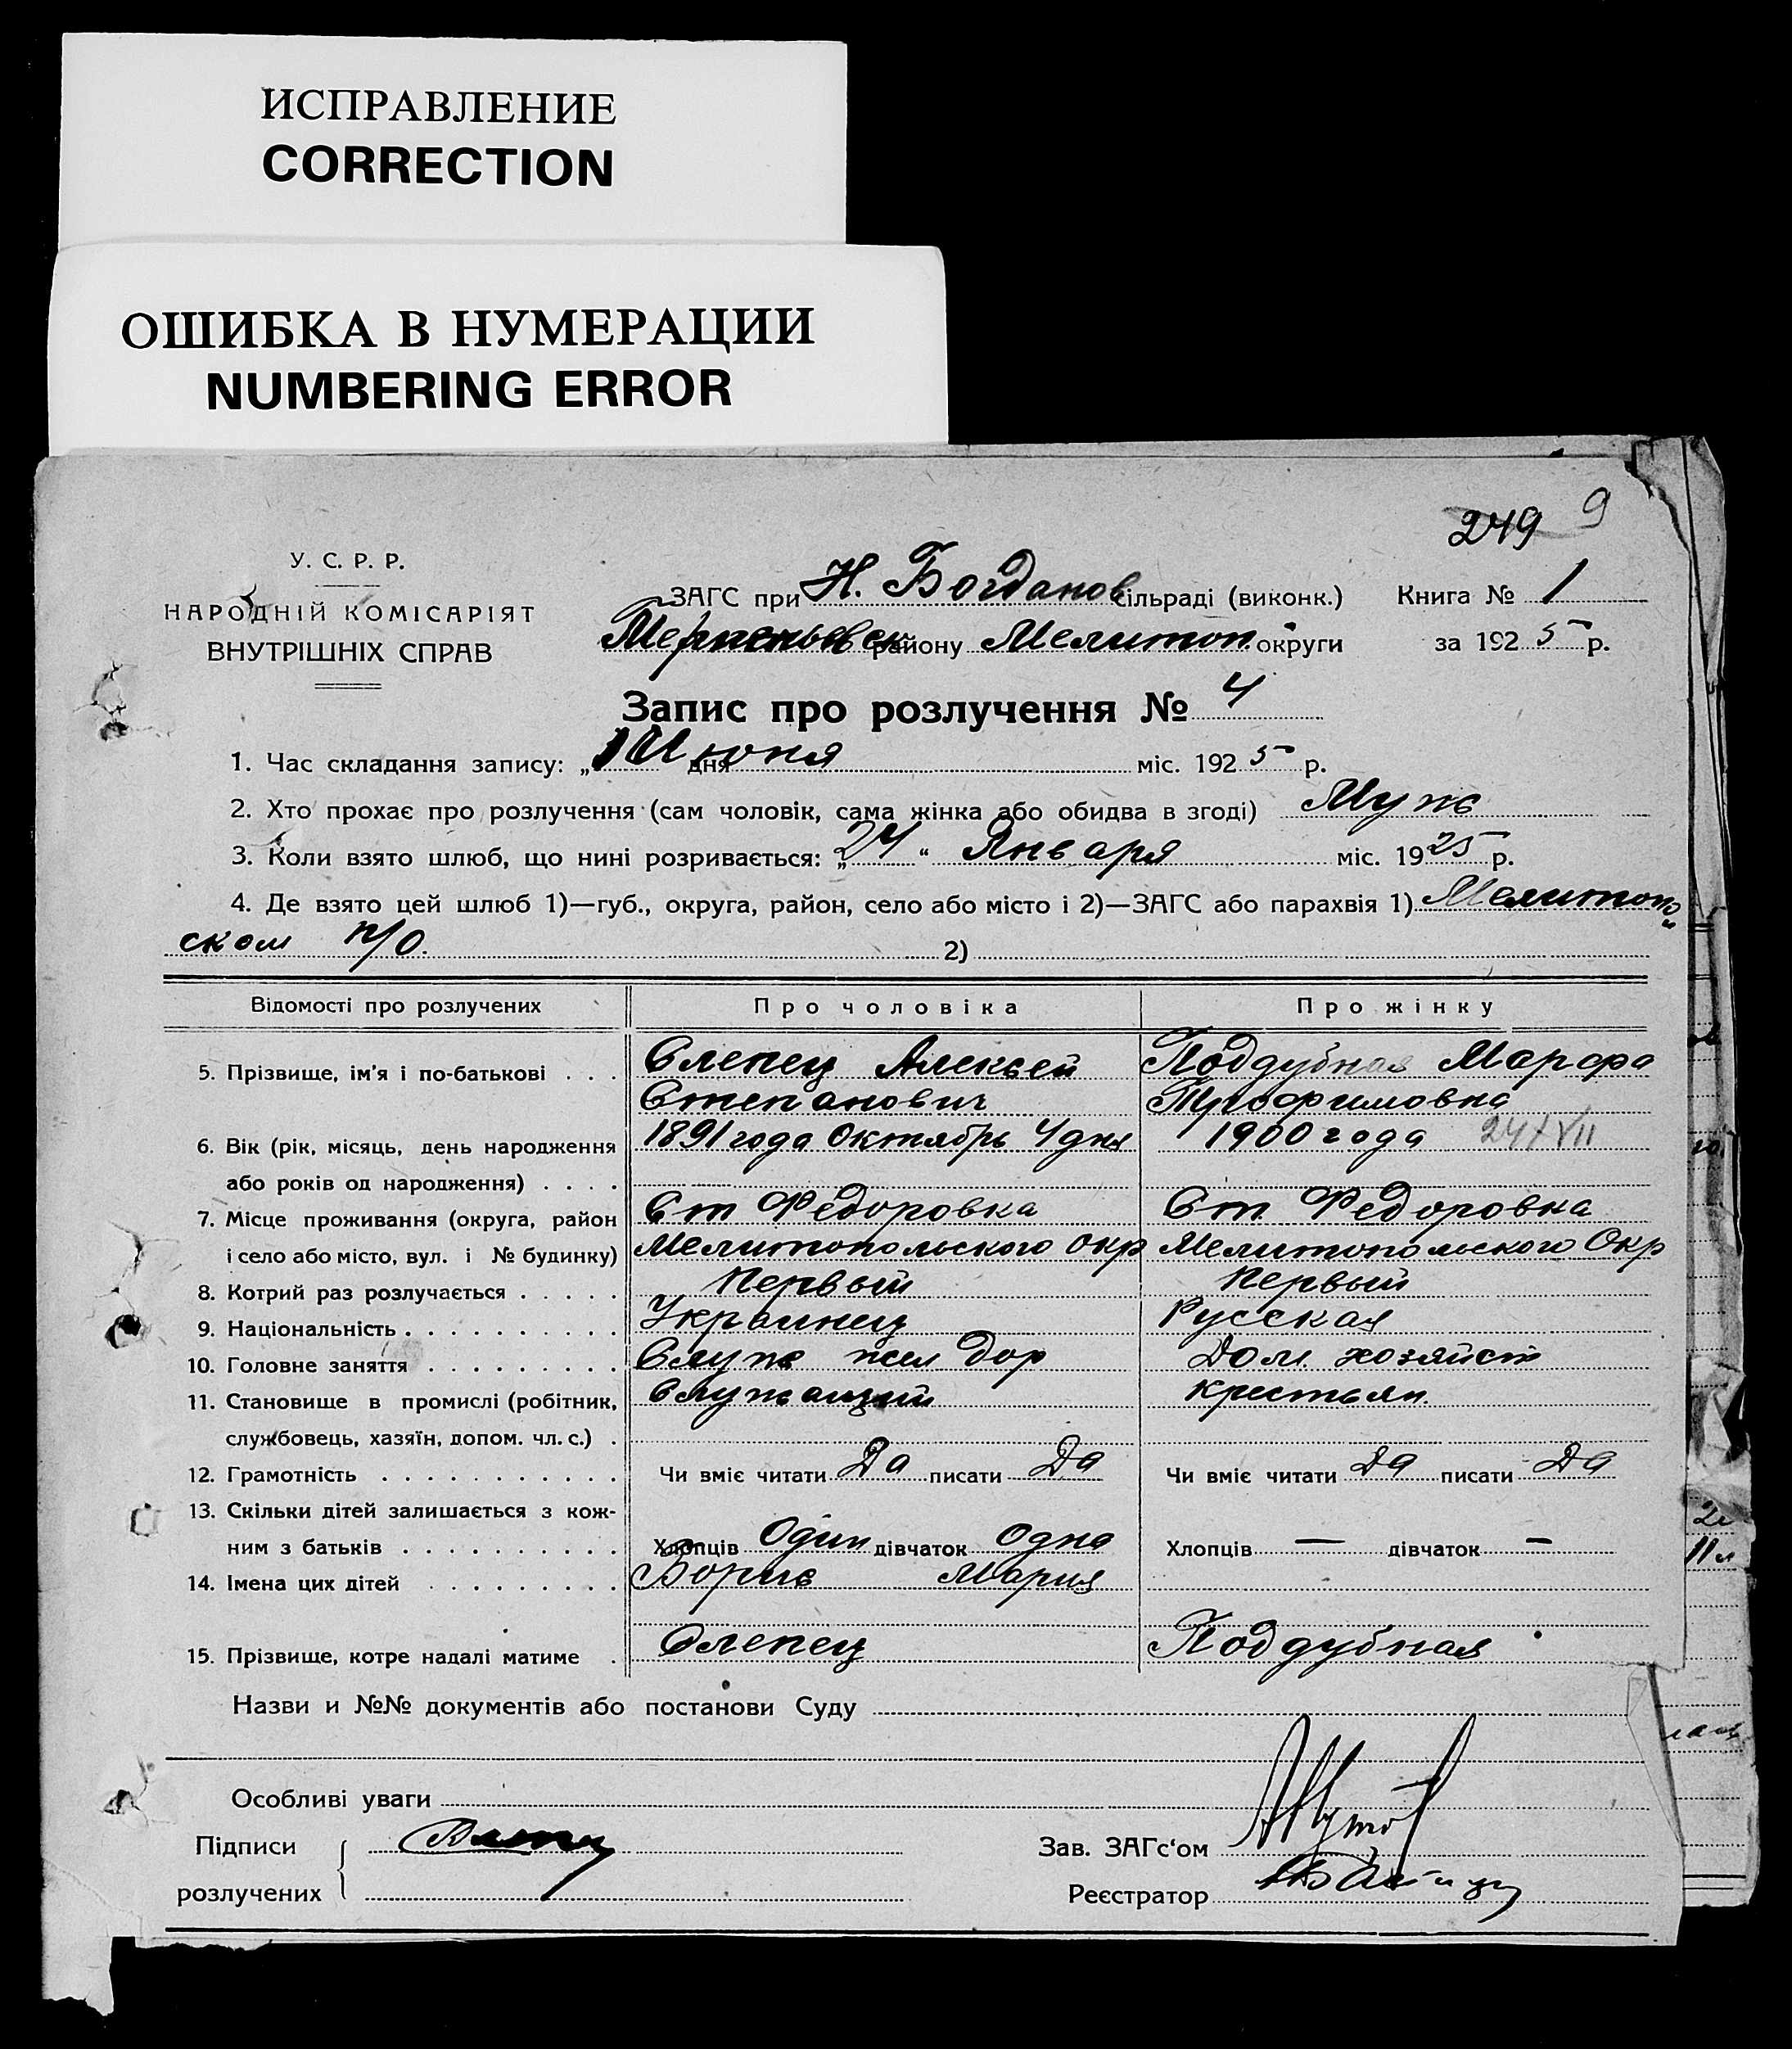 ИСПРАВЛЕНИЕ
CORRECTION
ОШИБКА В НУМЕРАЦИИ
NUMBERING ERROR
249 9
У. С. Р. Р.
НАРОДНІЙ КОМІСАРІЯТ
ВНУТРІШНІХ СПРАВ
ЗАГС при Н. Богданов сільраді (виконк.) Книга № 1
району Мелитоп. округи за 1925 р.
Запис про розлучення № 4
1. Час складання запису: „1 дня Июня міс. 1925 р.
2. Хто прохає про розлучення (сам чоловік, сама жінка або обидва в згоді) Муж
3. Коли взято шлюб, що нині розривається: „24“ Января міс. 1925 р.
4. Де взято цей шлюб 1)—губ., округа, район, село або місто і 2)—ЗАГС або парахвія 1) Мелитополь
ском 2)
Відомості про розлучених Про чоловіка Про жінку
5. Прізвище, ім'я і по-батькові . . . Слепец Алексей Поддубная Марфа
Степанович Трофимовна
6. Вік (рік, місяць, день народження 1891 года Октябрь 4 дня 1900 года 24/VII
або років од народження) . . . .
7. Місце проживання (округа, район Ст Федоровка Ст. Федоровка
і село або місто, вул. і № будинку) Мелитопольского Окр Мелитопольского Окр
8. Котрий раз розлучається . . . . . Первый Первый
9. Національність . . . . . . . . . . Украинец Русская
10. Головне заняття . . . . . . . . . Служ жел дор Дом. хозяйст
11. Становище в промислі (робітник, Служащий крестьян.
службовець, хазяїн, допом. чл. с.) .
12. Грамотність . . . . . . . . . . . Чи вміє читати Да писати Да Чи вміє читати Да писати Да
13. Скільки дітей залишається з кож-
ним з батьків . . . . . . . . . . Хлопців Один дівчаток Одна Хлопців — дівчаток —
14. Імена цих дітей . . . . . . . . . Борис Мария
15. Прізвище, котре надалі матиме . Слепец Поддубная
Назви и №№ документів або постанови Суду
Особливі уваги
Підписи
розлучених
Зав. ЗАГс'ом
Реєстратор